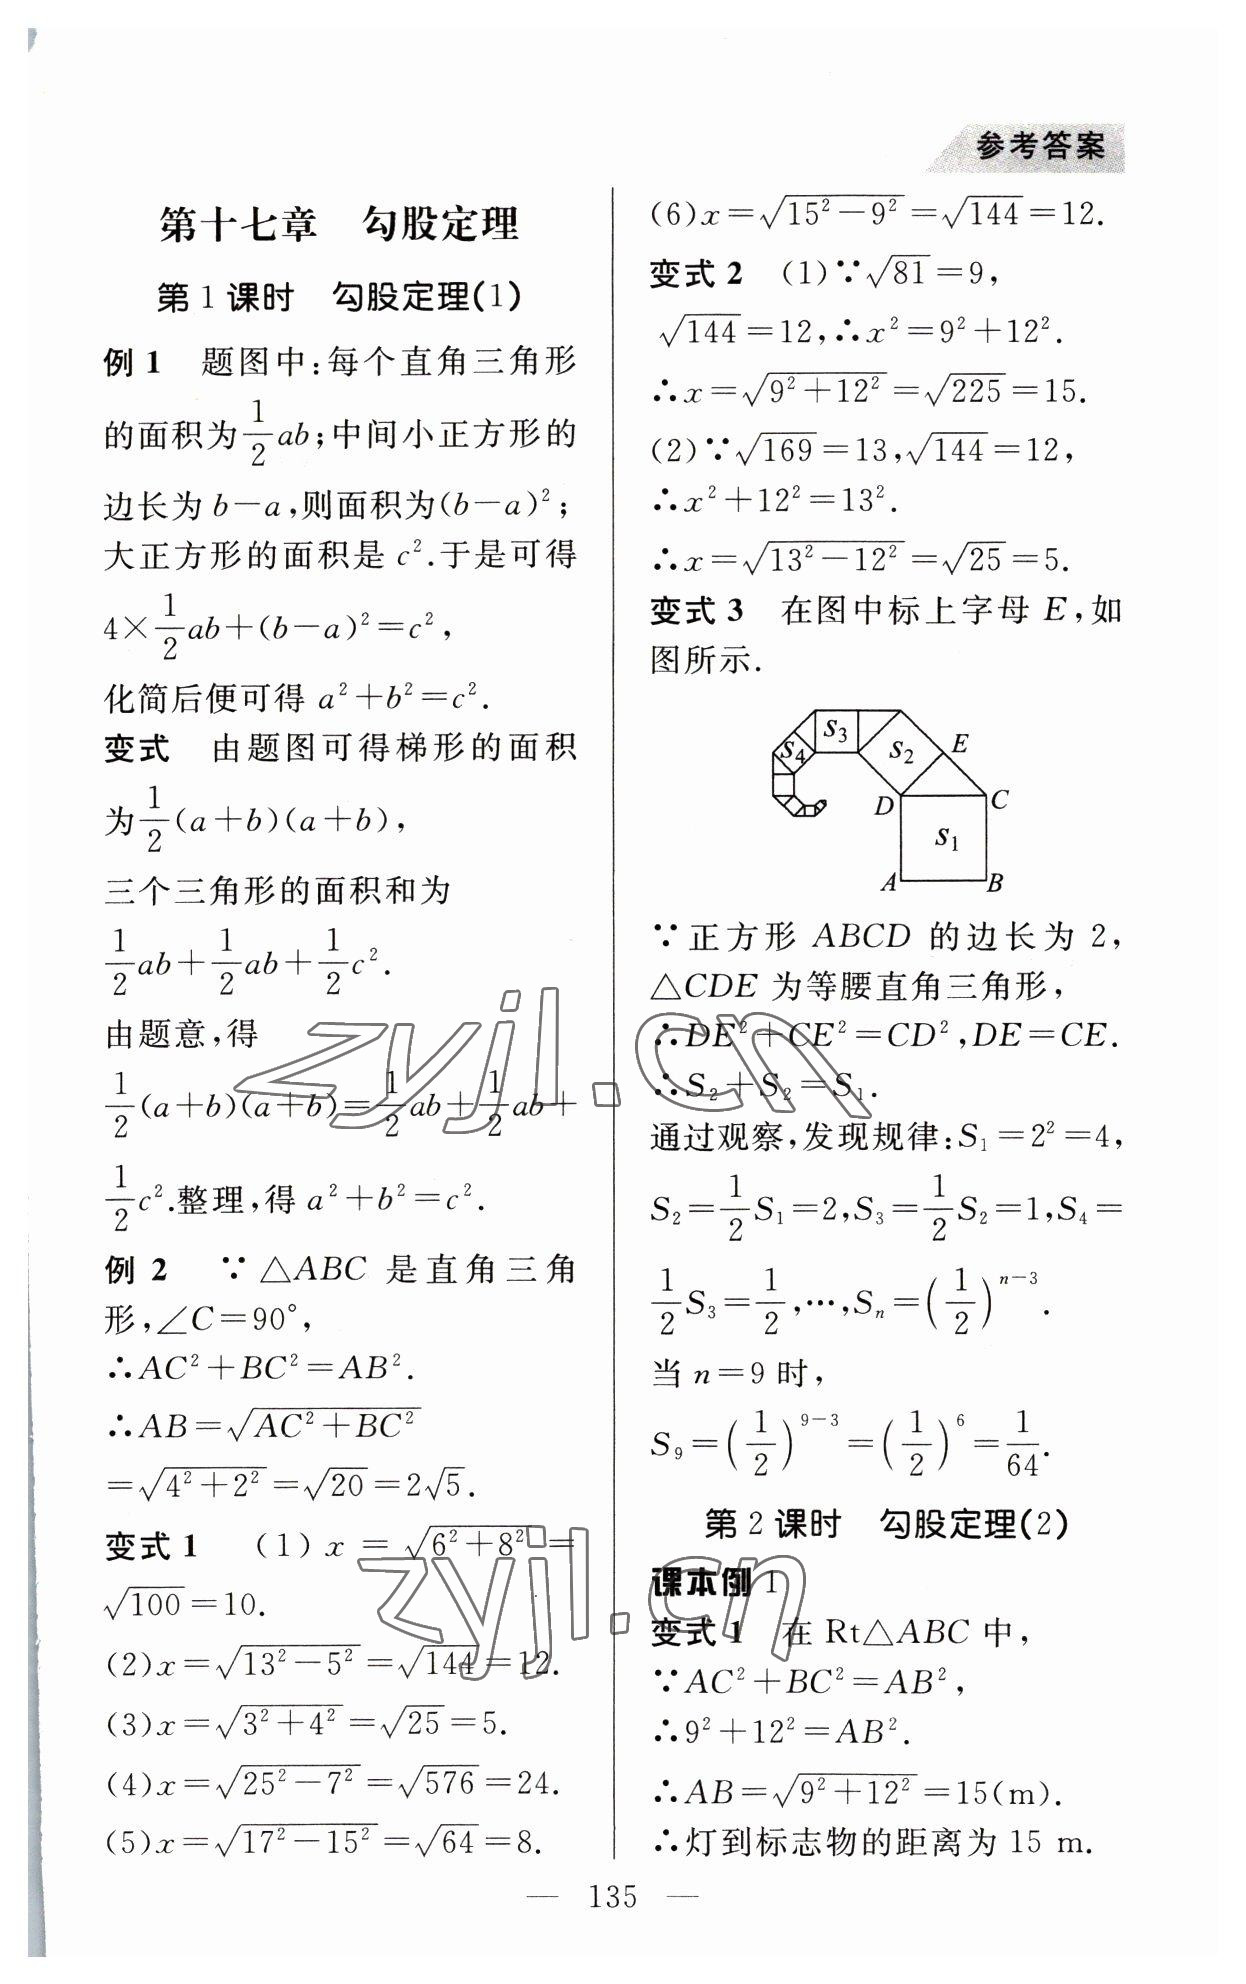 参考答案
第十七章 勾股定理
第1课时 勾股定理(1)
例1 题图中:每个直角三角形
的面积为\frac{1}{2}ab;中间小正方形的
边长为b-a,则面积为(b-a)²;
大正方形的面积是c².于是可得
4×\frac{1}{2}ab+(b-a)²=c²,
化简后便可得a²+b²=c².
变式 由题图可得梯形的面积
为\frac{1}{2}(a+b)(a+b),
三个三角形的面积和为
\frac{1}{2}ab+\frac{1}{2}ab+\frac{1}{2}c².
由题意,得
\frac{1}{2}(a+b)(a+b)=\frac{1}{2}ab+\frac{1}{2}ab+
\frac{1}{2}c².整理,得a²+b²=c².
例2 ∵△ABC是直角三角
形,∠C=90°,
∴AC²+BC²=AB².
∴AB=\sqrt{AC²+BC²}
=\sqrt{4²+2²}=\sqrt{20}=2\sqrt{5}.
变式1 (1)x=\sqrt{6²+8²}=
\sqrt{100}=10.
(2)x=\sqrt{13²-5²}=\sqrt{144}=12.
(3)x=\sqrt{3²+4²}=\sqrt{25}=5.
(4)x=\sqrt{25²-7²}=\sqrt{576}=24.
(5)x=\sqrt{17²-15²}=\sqrt{64}=8.
(6)x=\sqrt{15²-9²}=\sqrt{144}=12.
变式2 (1)∵\sqrt{81}=9,
\sqrt{144}=12,∴x²=9²+12².
∴x=\sqrt{9²+12²}=\sqrt{225}=15.
(2)∵\sqrt{169}=13,\sqrt{144}=12,
∴x²+12²=13².
∴x=\sqrt{13²-12²}=\sqrt{25}=5.
变式3 在图中标上字母E,如
图所示.
S₃
S₄ S₂ E
D C
S₁
A B
∵正方形ABCD的边长为2,
△CDE为等腰直角三角形,
∴DE²+CE²=CD²,DE=CE.
∴S₂+S₂=S₁.
通过观察,发现规律:S₁=2²=4,
S₂=\frac{1}{2}S₁=2,S₃=\frac{1}{2}S₂=1,S₄=
\frac{1}{2}S₃=\frac{1}{2},…,Sₙ=(\frac{1}{2})^{n-3}.
当n=9时,
S₉=(\frac{1}{2})^{9-3}=(\frac{1}{2})^{6}=\frac{1}{64}.
第2课时 勾股定理(2)
课本例1
变式1 在Rt△ABC中,
∵AC²+BC²=AB²,
∴9²+12²=AB².
∴AB=\sqrt{9²+12²}=15(m).
∴灯到标志物的距离为15 m.
— 135 —
zyjl.cn
zyjl.cn